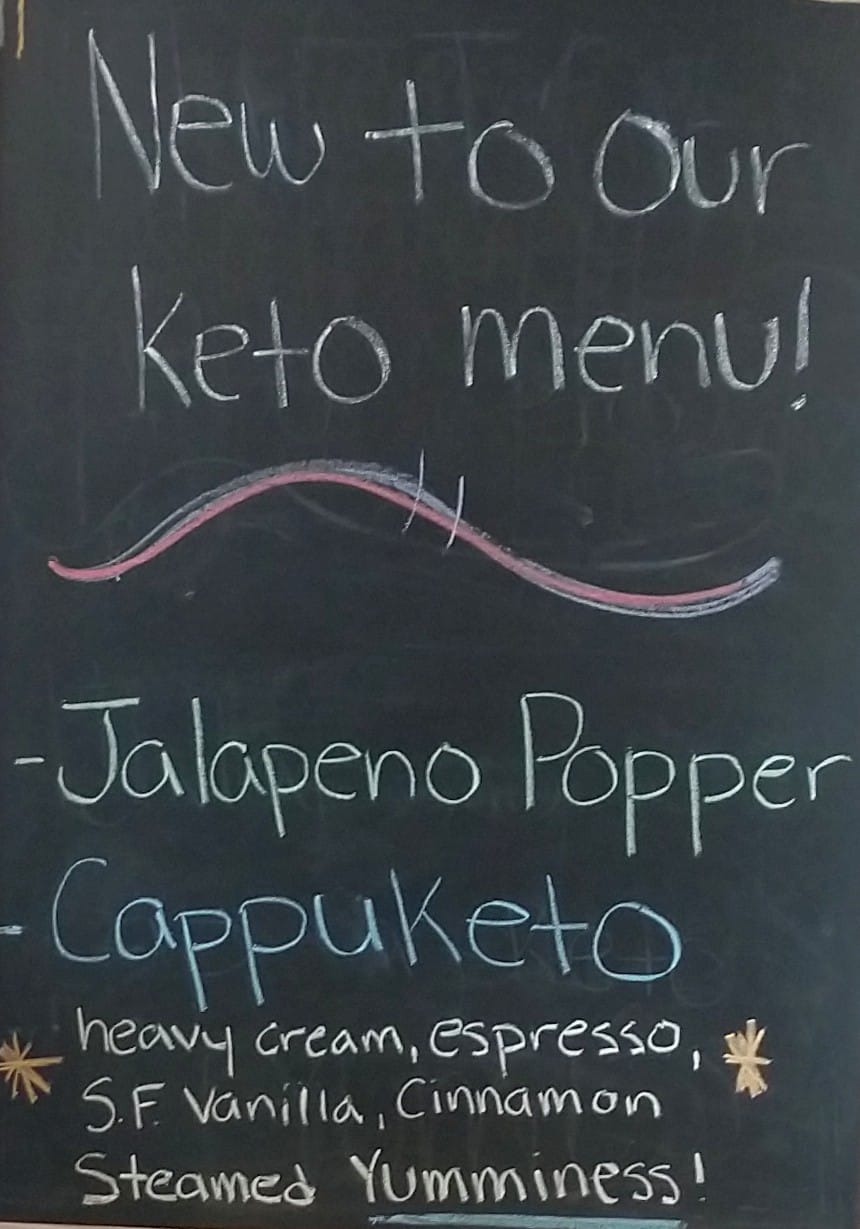 New to Our
Keto menu!
- Jalapeno Popper
- CappuKeto
heavy cream, espresso,
S.F. Vanilla, Cinnamon
Steamed Yumminess!